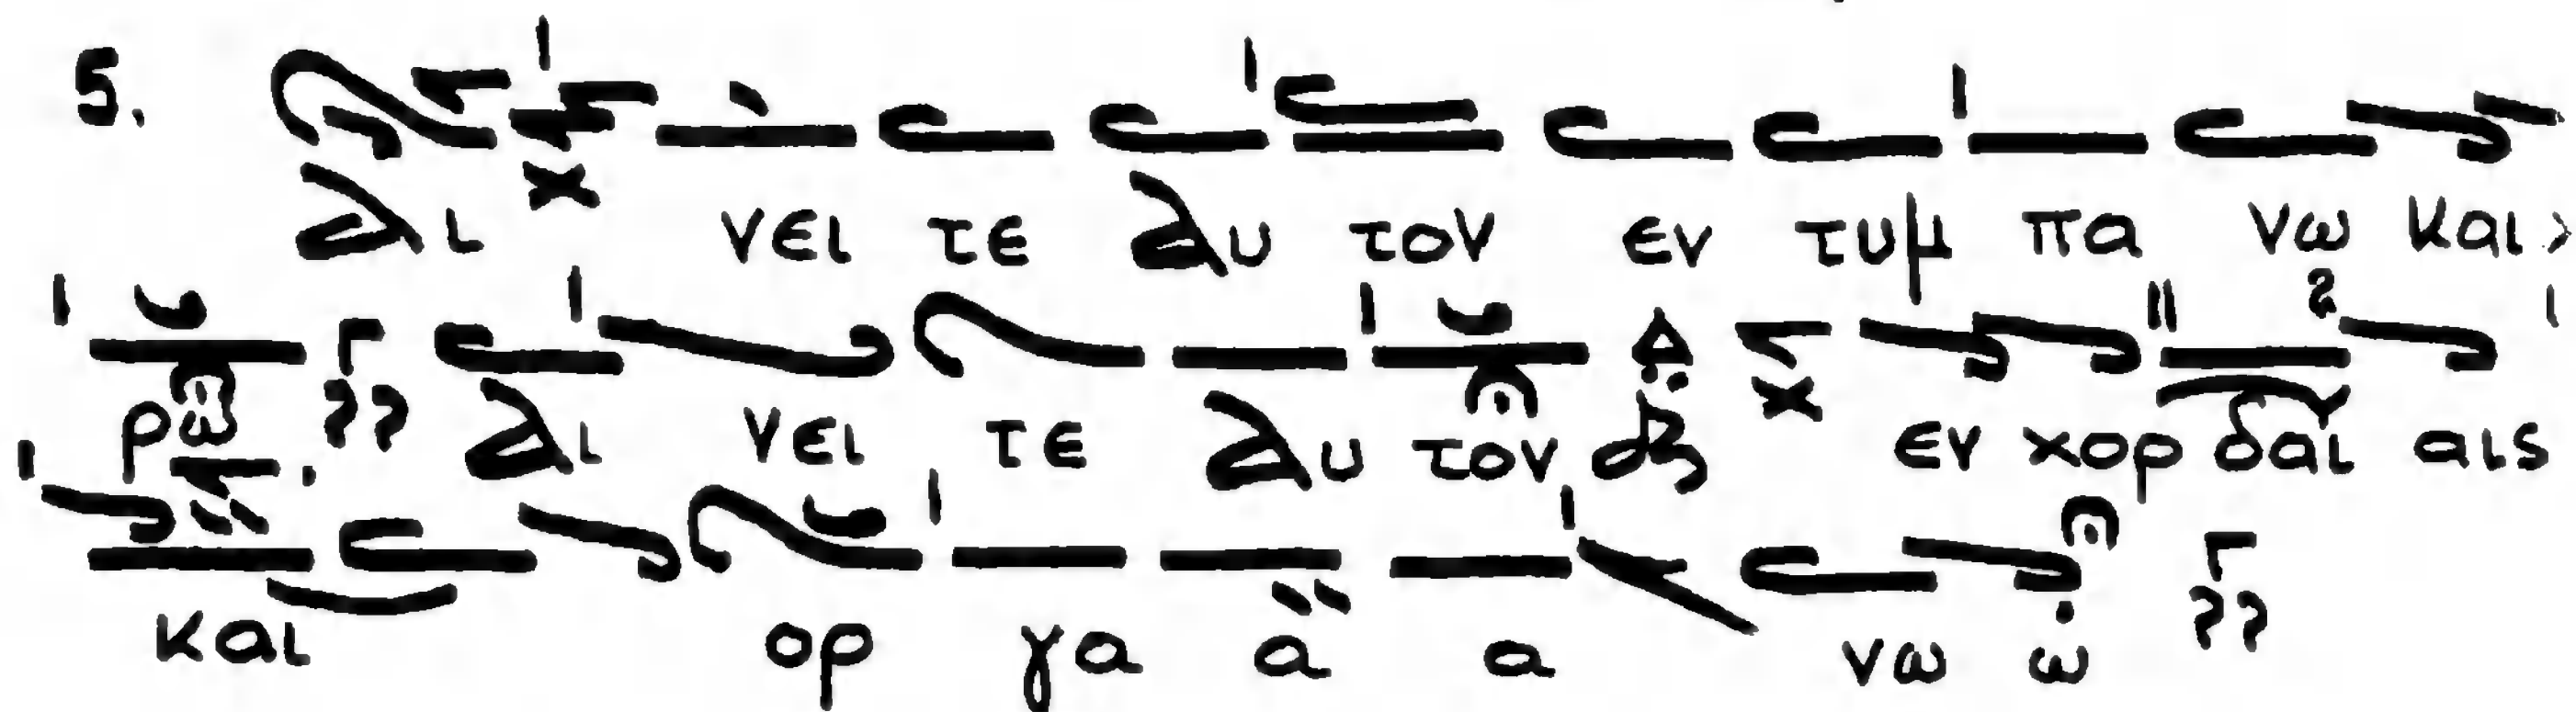 5. Αι νει τε αυ τον εν τυμ πα νω και χ
ρω αι νει τε αυ τον εν χορ δαι αις
και ορ γα α α νω ω